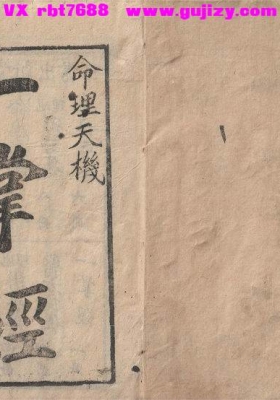 VX rbt7688
www.gujizy.com
命理天機
一掌經